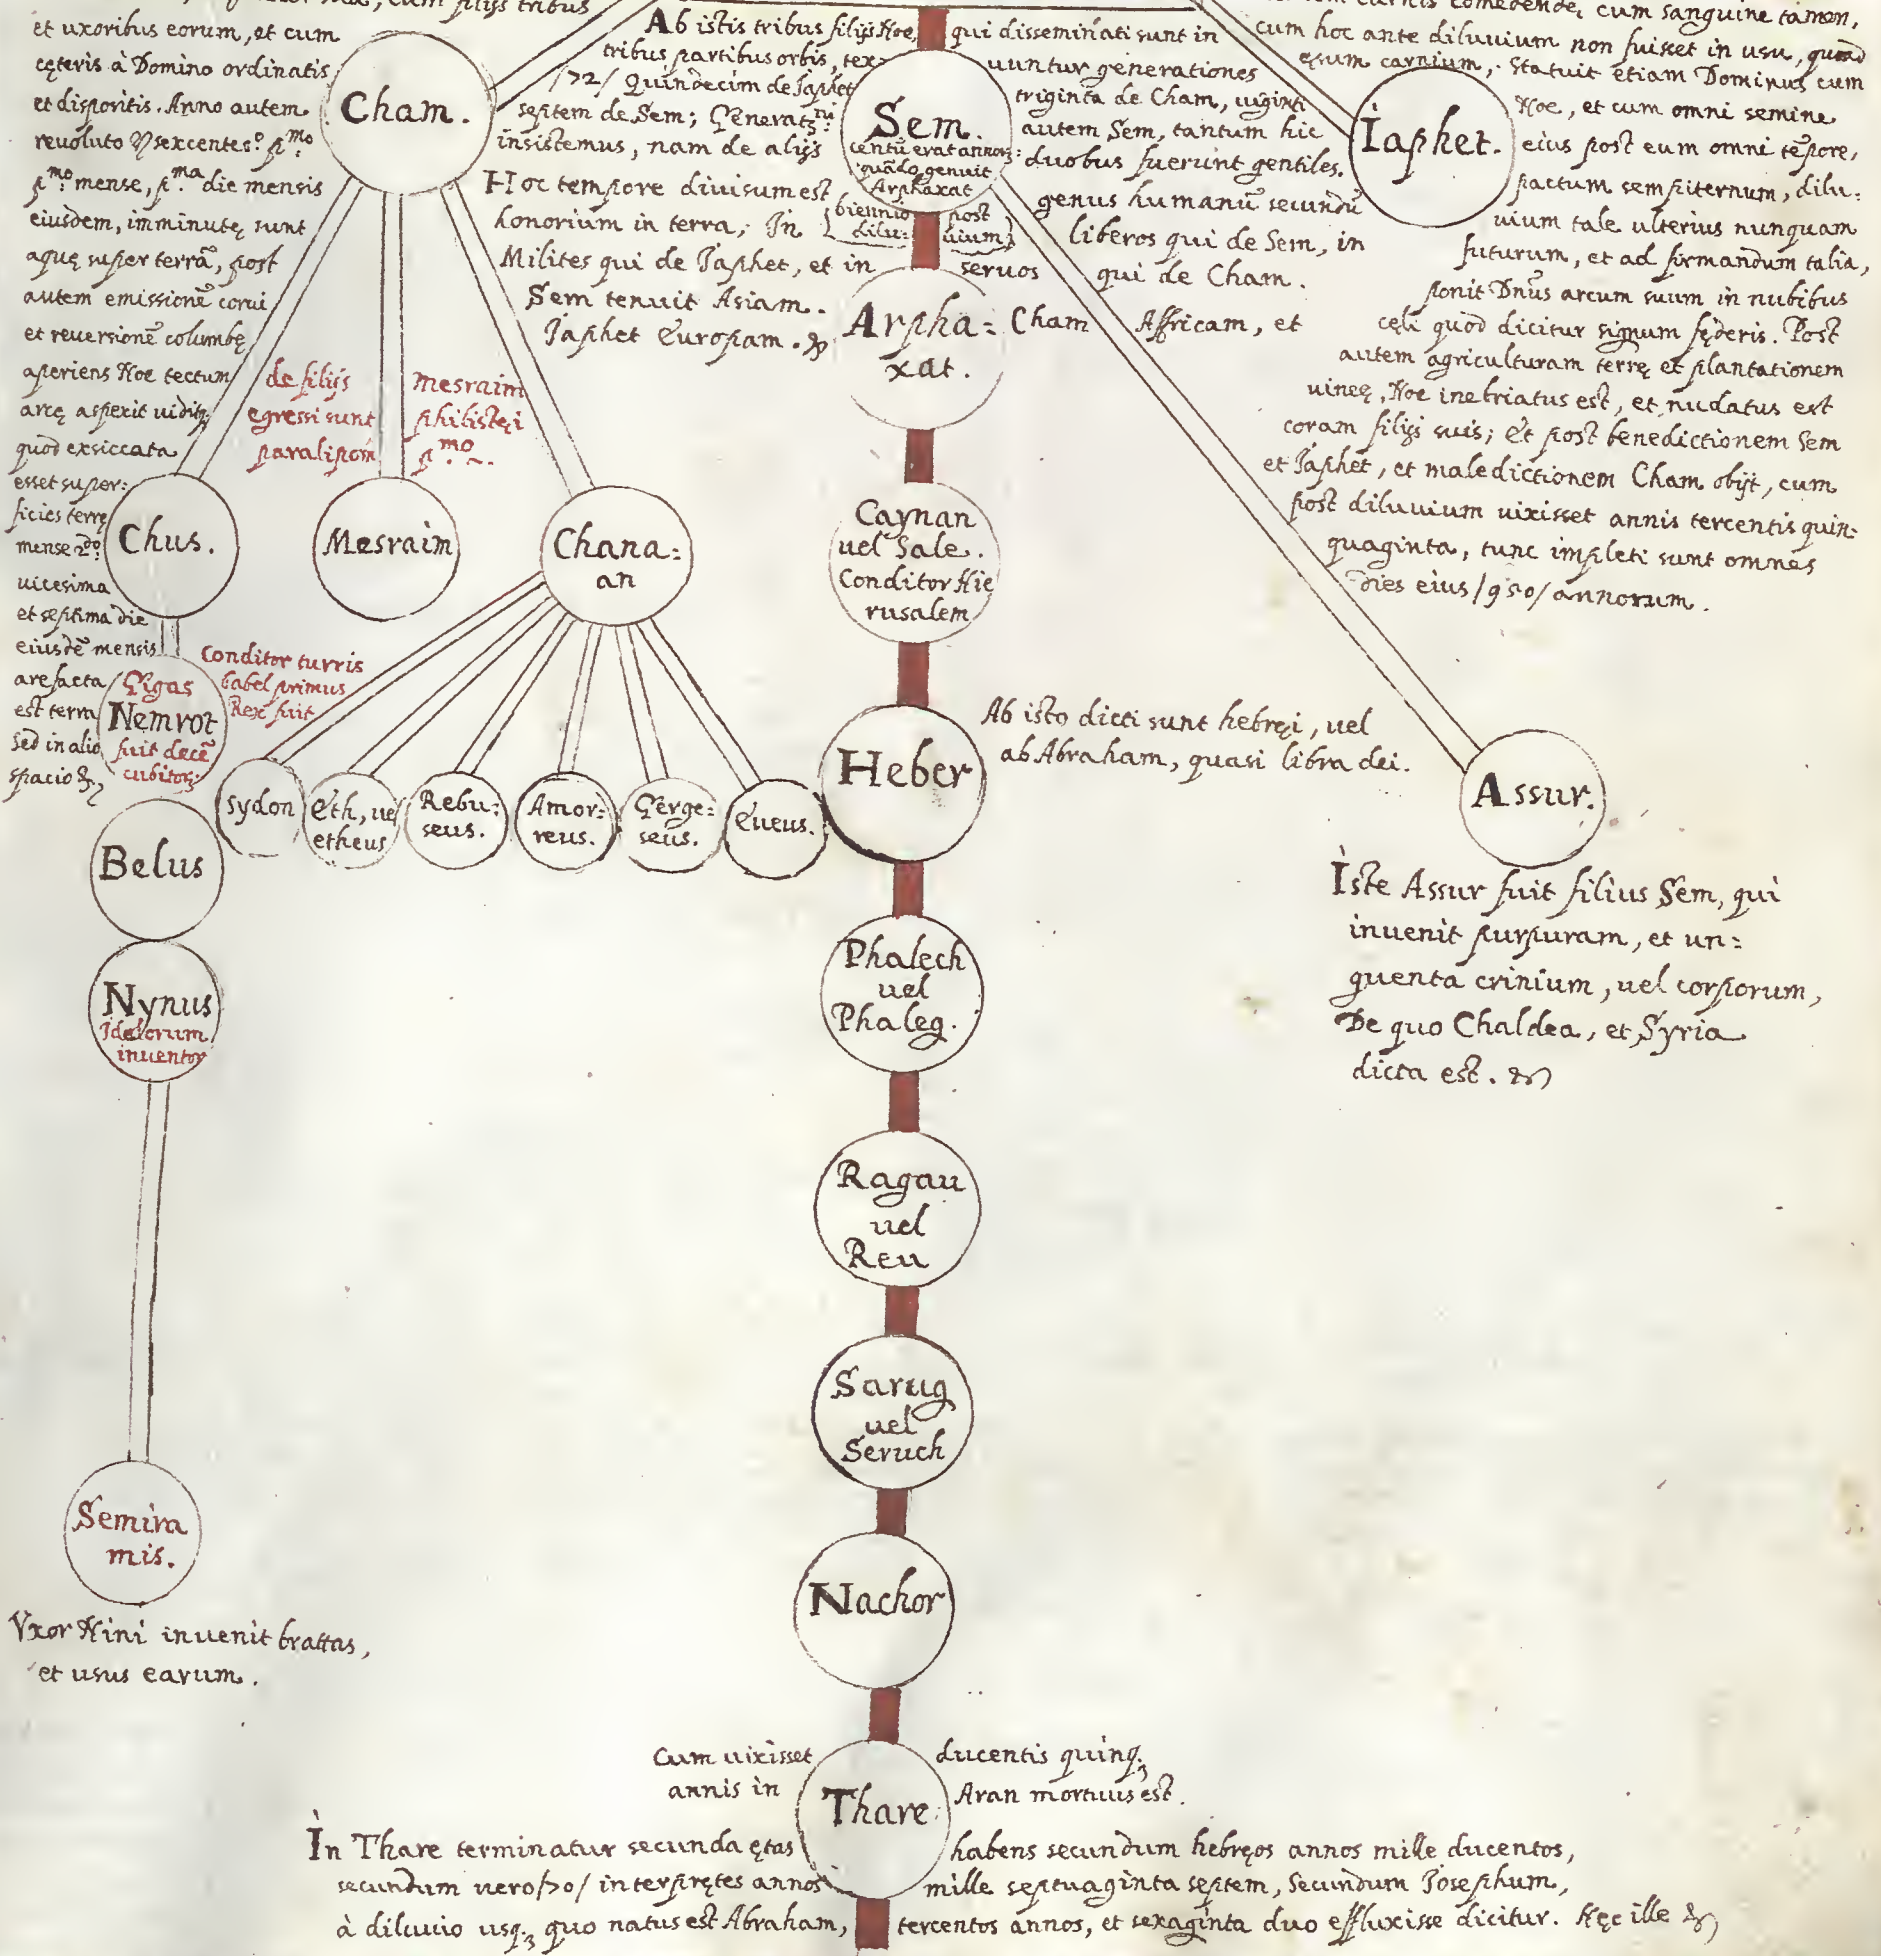 et uxoribus eorum, et cum
cęteris à Domino ordinatis
et dispositis. Anno autem
reuoluto sexcentes.º p.mo
p.mo mense, p.ma die mensis
eiusdem, imminutę sunt
aquę super terrã, post
autem emissionẽ corui
et reuersionẽ columbę
aperiens Noe tectum
arcę aspexit uiditq3
quod exsiccata
esset super:
ficies terrę
mense 2.do
uicesima
et septima die
eiusdẽ mensis
arefacta
est terra
sed in alio
spacio &c,
Cham.
Ab istis tribus filijs Noe, qui disseminati sunt in
tribus partibus orbis, tex: uuntur generationes
/72/ Quindecim de Japhet triginta de Cham, uiginti
septem de Sem; autem Sem, tantum hic
insistemus, nam de alijs duobus fuerunt gentiles.
Hoc tempore diuisum est genus humanũ secundũ
honorium in terra, In liberos qui de Sem, in
Milites qui de Japhet, et in seruos qui de Cham.
Sem tenuit Asiam. Cham Affricam, et
Japhet Europam. &
Sem.
centũ erat annor:
quãdo genuit
Arphaxat
biennio post
dilu: uium
Iaphet.
cum sanguine tamen,
cum hoc ante diluuium non fuisset in usu, quod
esum carnium, Statuit etiam Dominus cum
Noe, et cum omni semine
eius post eum omni tẽpore,
pactum sempiternum, dilu:
uium tale ulterius nunquam
futurum, et ad firmandum talia,
ponit Dñus arcum suum in nubibus
cęli quod dicitur signum fęderis. Post
autem agriculturam terrę et plantationem
uineę, Noe inebriatus est, et nudatus est
coram filijs suis; Et post benedictionem Sem
et Japhet, et maledictionem Cham obijt, cum
post diluuium uixisset annis tercentis quin:
quaginta, tunc impleti sunt omnes
dies eius /950/ annorum.
Arpha:
xat.
de filijs mesraim
egressi sunt philistęi
paralipom p.mo
Chus.
Mesraim
Chana:
an
Caynan
uel Sale.
Conditor Hie
rusalem
Gigas
Nemrot
fuit decẽ
cubitor:
Conditor turris
babel primus
Rex fuit
Sydon
Eth, uel
etheus
Rebu:
seus.
Amor:
reus.
Gerge:
seus.
Eueus.
Heber
Ab isto dicti sunt hebręi, uel
ab Abraham, quasi libra dei.
Assur.
Iste Assur fuit filius Sem, qui
inuenit purpuram, et un:
guenta crinium, uel corporum,
De quo Chaldea, et Syria
dicta est. &
Belus
Nynus
Idolorum
inuentor
Phalech
uel
Phaleg.
Ragau
uel
Reu
Sarug
uel
Seruch
Semira
mis.
Vxor Nini inuenit brattas,
et usus earum.
Nachor
Thare
Cum uixisset ducentis quinq3
annis in Aran mortuus est.
In Thare terminatur secunda ętas habens secundum hebręos annos mille ducentos,
secundum uero /70/ interprętes annos mille septuaginta septem, Secundum Josephum,
à diluuio usq3 quo natus est Abraham, tercentos annos, et sexaginta duo effluxisse dicitur. Hęc ille &